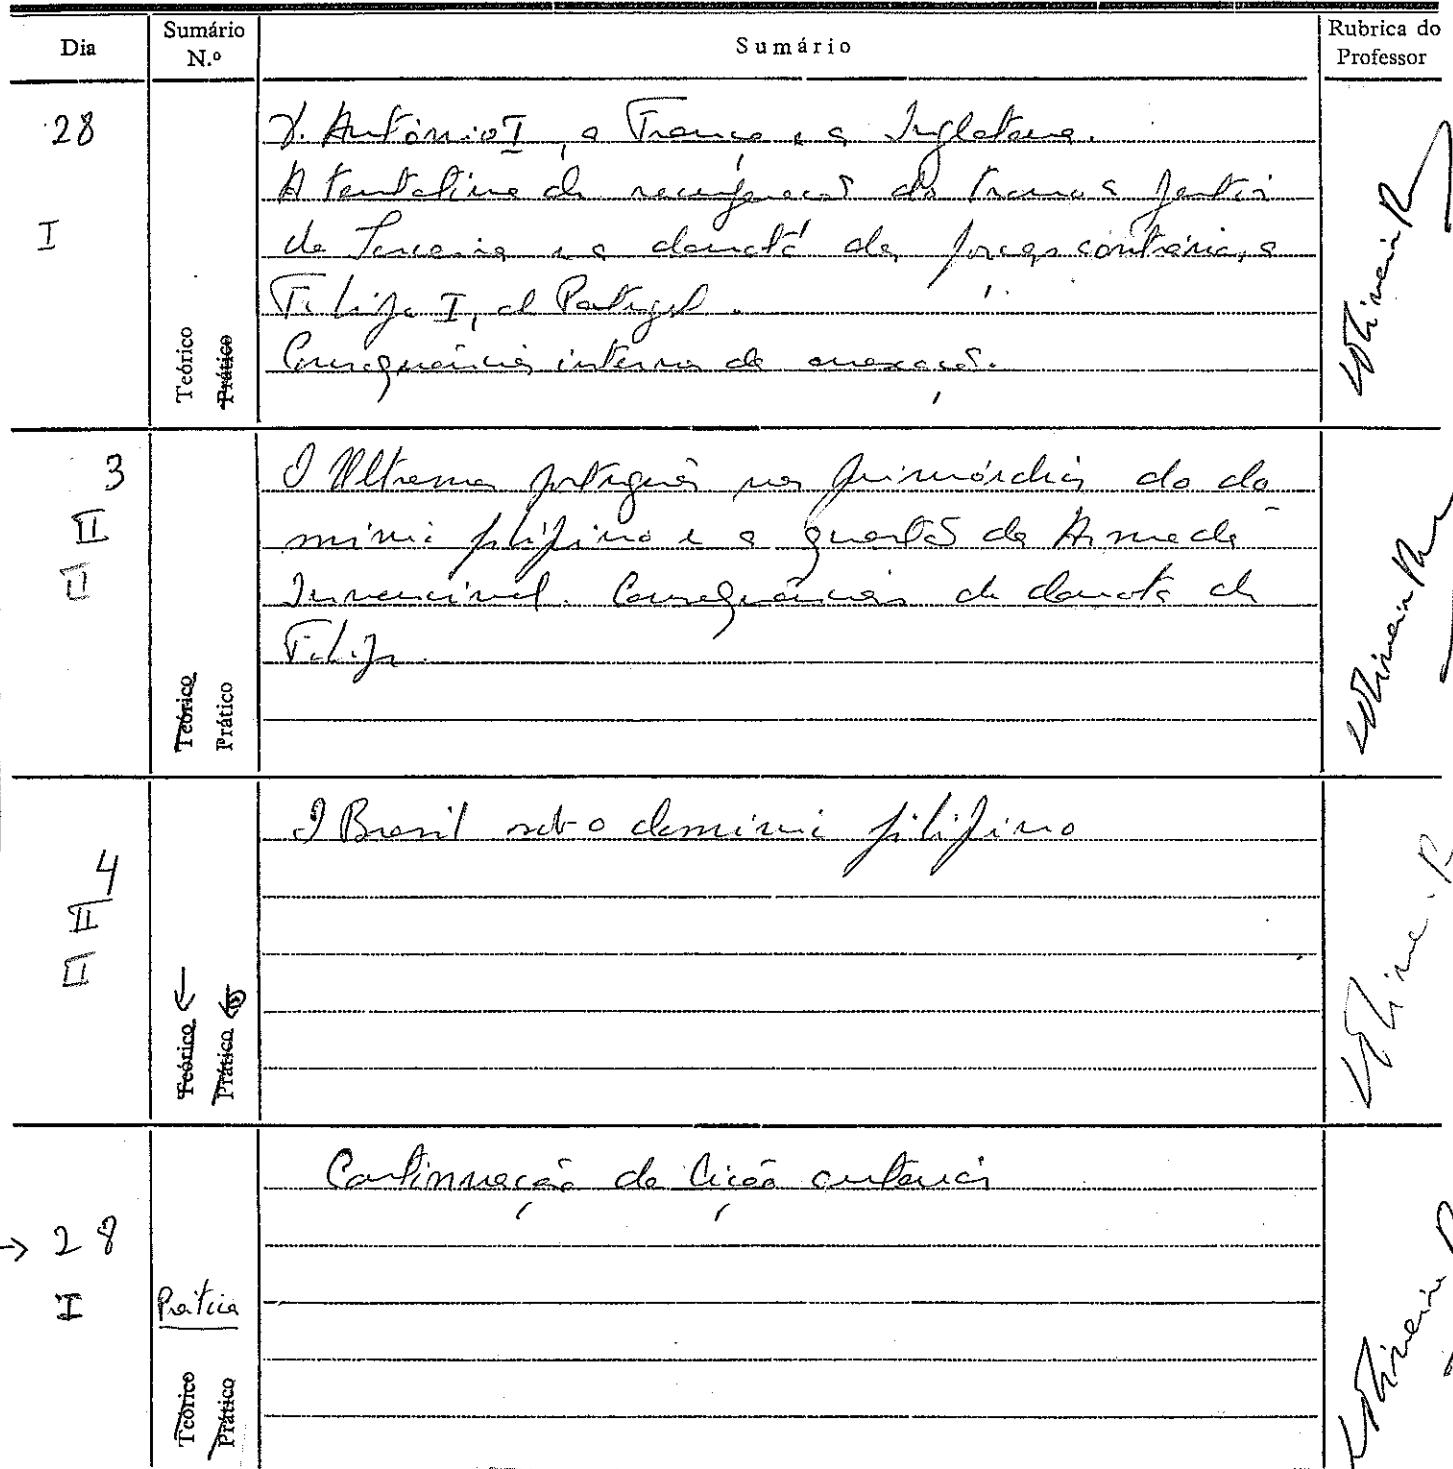 Dia
Sumário N.º
Sumário
Rubrica do Professor
28
I
Teórico
Prático
D. António I, a França e a Inglaterra.
A tentativa de recuperação do trono a partir
da Terceira e a derrota das forças contrárias a
Filipe I, de Portugal.
Consequências internas da anexação.
3
II
Teórico
Prático
O Ultramar português nos primórdios do do
mínio filipino e a questão da Armada
Invencível. Consequências da derrota de
Filipe.
4
II
Teórico
Prático
O Brasil sob o domínio filipino
→ 28
I
Prática
Teórico
Prático
Continuação da lição anterior